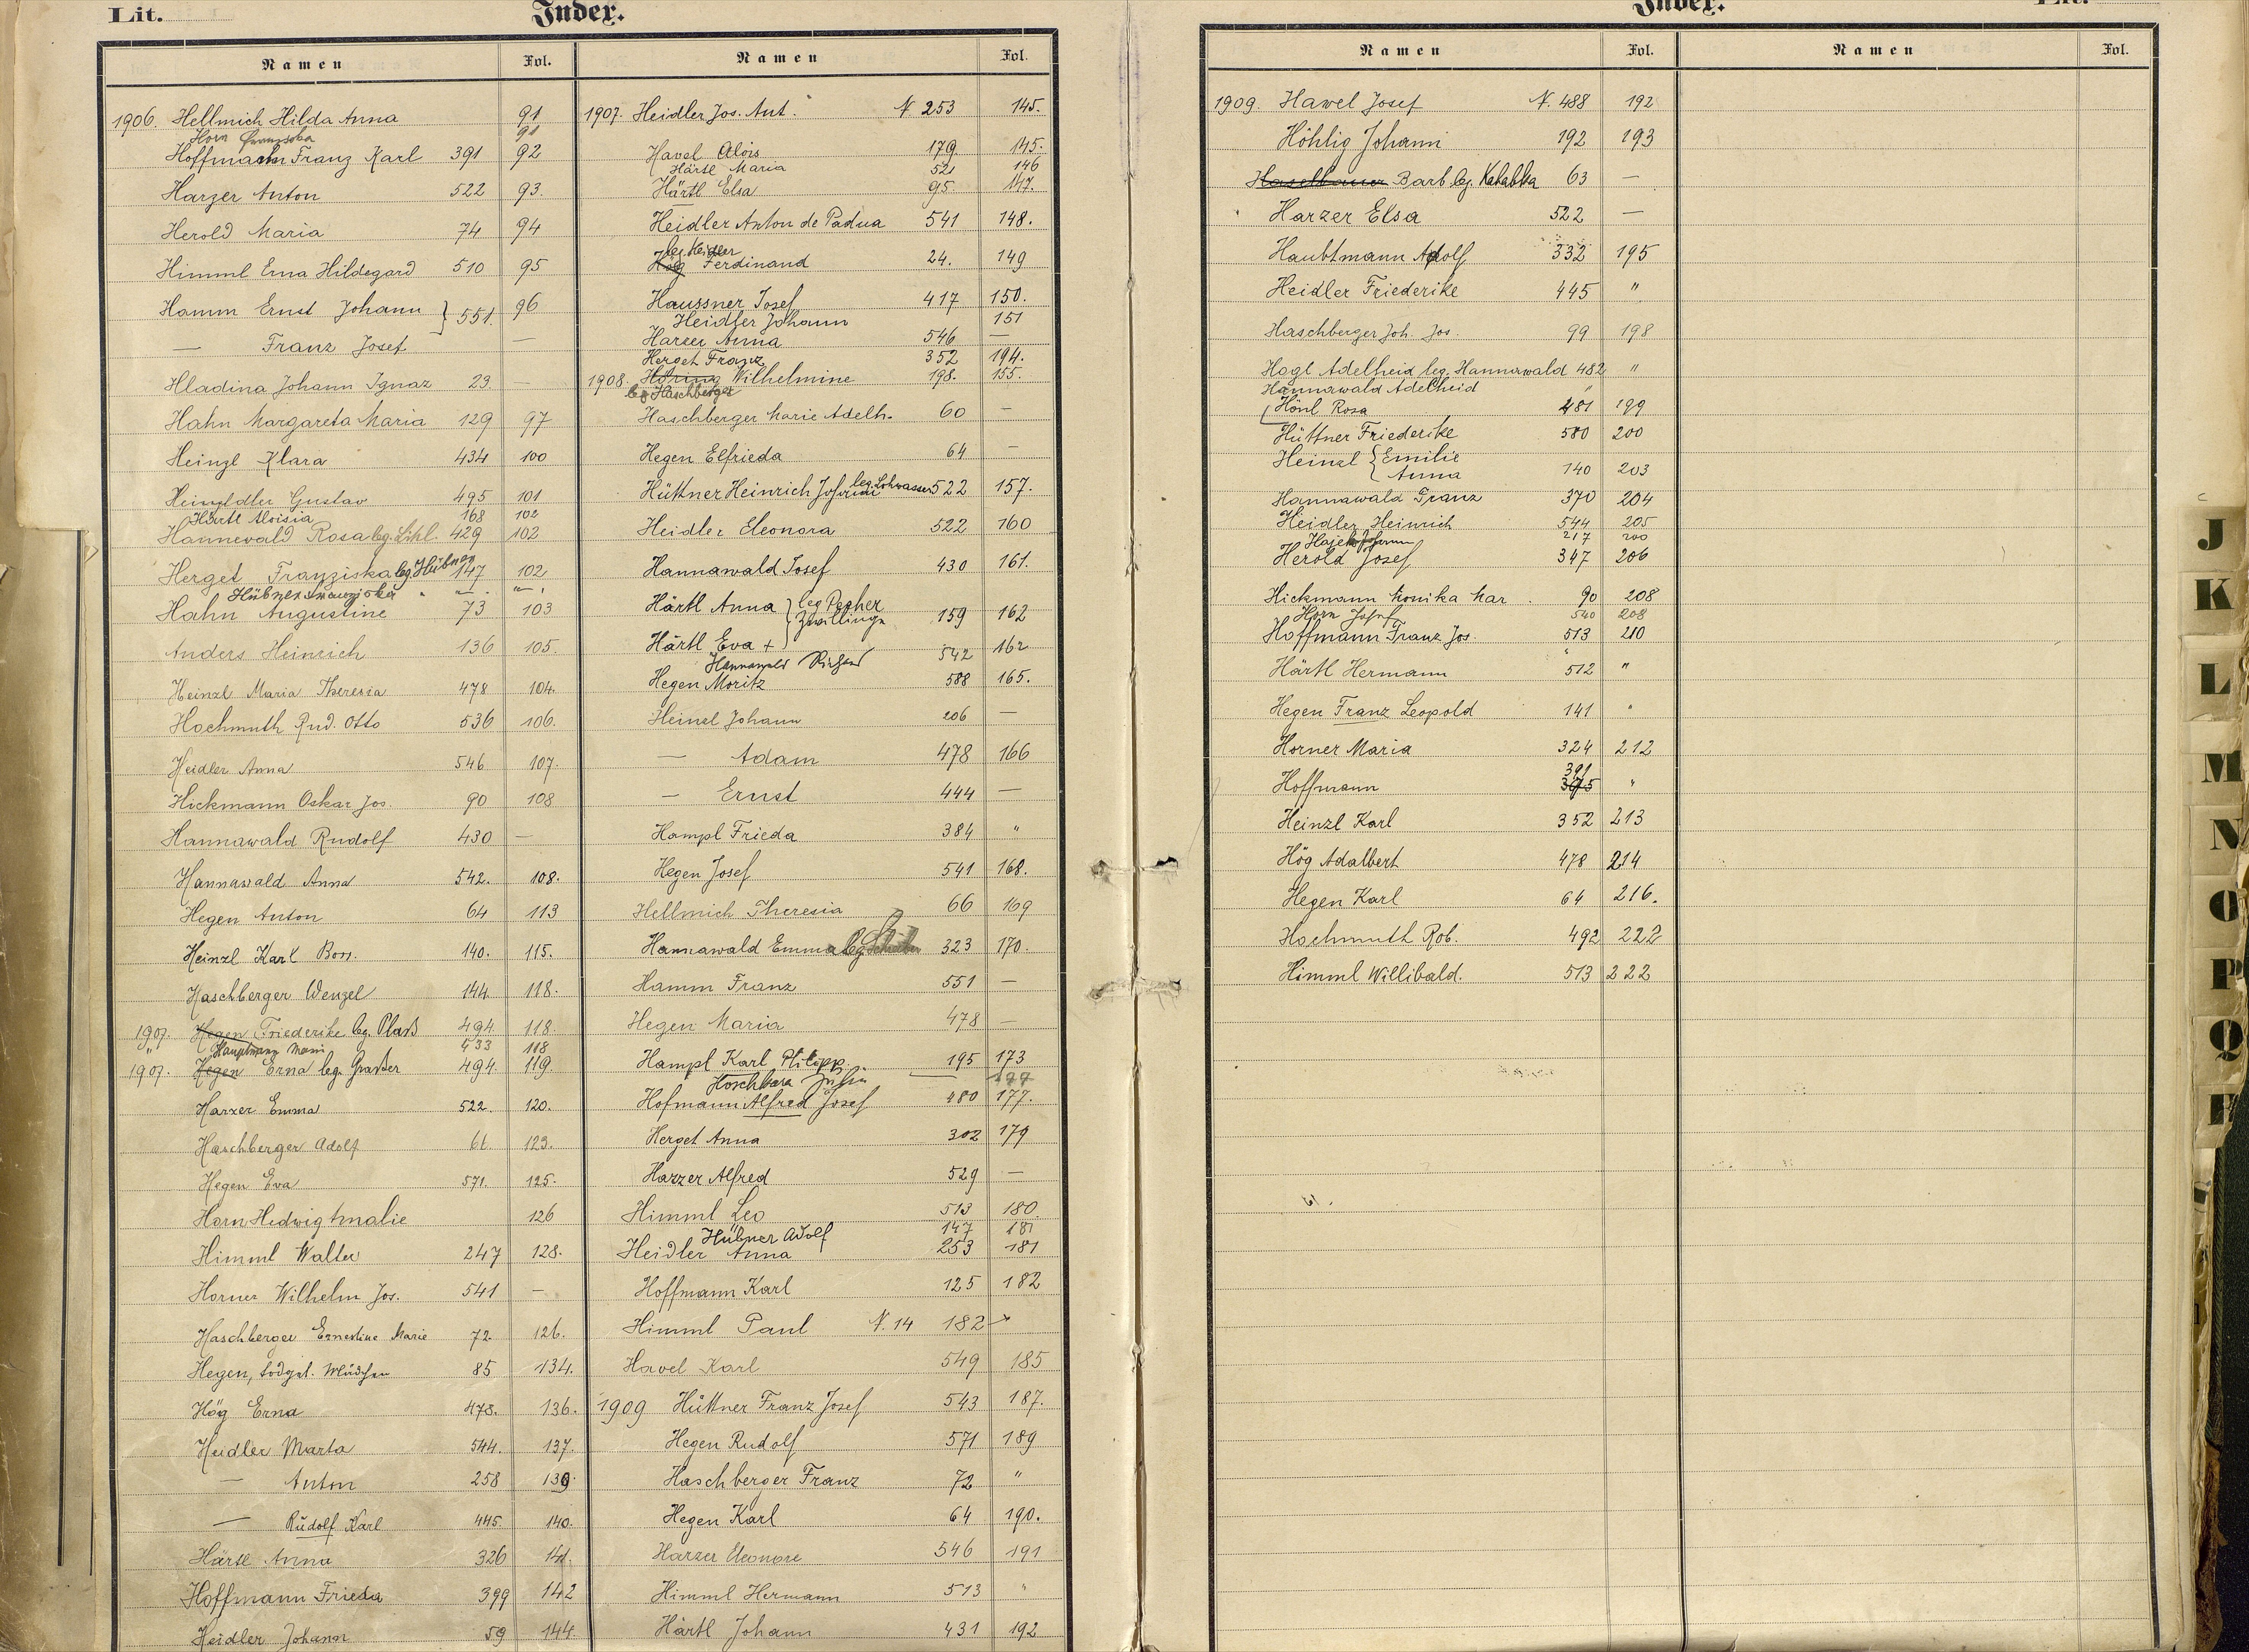 Lit.
Index.
Namen Fol. Namen Fol.
1906. Hellmich Hilda Anna 91
Horn Franziska 91
Hoffmann Franz Karl 391 92
Harzer Anton 522 93.
Herold Maria 74 94
Himml Erna Hildegard 510 95
Hamm Ernst Johann } 551. 96
— Franz Josef. —
Hladina Johann Ignaz 23. —
Hahn Margareta Maria 129 97
Heinzl Klara 434 100
Gustav 495 101
Härtl Aloisia 168 102
Hannewald Rosa leg. 429 102
Herget Franziska leg. Hübner 147 102
Hübner Franziska " — . " — .
Hahn Augustine 73 103
Anders Heinrich 136 105.
Heinzl Maria Theresia 478 104.
Hochmuth Rud. Otto 536 106.
Heidler Anna 546 107.
Hickmann Oskar Jos. 90 108
Hannawald Rudolf 430 —
Hannawald Anna 542. 108.
Hegen Anton 64 113
Heinzl Karl 140. 115.
Haschberger Wenzel 144. 118.
1907. Hegen Friederike leg. Plaß 494. 118.
" Hauptmann 433 118
1907. Hegen Erna leg. Graßer 494. 119.
Harzer Emma 522. 120.
Haschberger Adolf 61. 123.
Hegen Eva 571. 125.
Horn Hedwig Amalie 126
Himml Walter 247 128.
Horner Wilhelm Jos. 541 —
Haschberger Ernestine Marie 72 126.
Hegen, todget. Mädchen 85 134.
Hög Erna 478. 136.
Heidler Marta 544. 137.
— Anton 258 139.
— Rudolf Karl 445. 140.
Härtl Anna 326 141.
Hoffmann Frieda 399 142
Heidler Johann 59 144.
1907. Heidler Jos. Ant. N 253 145.
Havel Alois 179 145.
Härtl Maria 52 146
Härtl Elsa 95. 147.
Heidler Anton de Padua 541 148.
leg. Heidler
Hög Ferdinand 24. 149
Haussner Josef 417 150.
Heidler Johann 151
Harzer Anna 546 —
Herget Franz 352 194.
1908. Höring Wilhelmine 198. 155.
leg. Haschberger
Haschberger Marie Adelh. 60 —
Hegen Elfrieda 64 —
Hüttner Heinrich Johann leg. Lohwasser 522 157.
Heidler Eleonora 522 160
Hannawald Josef 430 161.
Härtl Anna } leg. Pecher
Zwillinge 159 162
Härtl Eva + 162
Hannawald Richard 542
Hegen Moritz 588 165.
Heinzl Johann 206 —
— Adam 478 166
— Ernst 444 —
Hampl Frieda 384 "
Hegen Josef 541 168.
Hellmich Theresia 66 169
Hannawald Emma leg. 323 170.
Hamm Franz 551 —
Hegen Maria 478 —
Hampl Karl Philipp 195 173
— 177
Hofmann Alfred Josef 480 177.
Herget Anna 302 179
Harzer Alfred 529 —
Himml Leo 513 180.
Hübner Adolf 147 181
Heidler Anna 253 181
Hoffmann Karl 125 182
Himml Paul N. 14 182
Havel Karl 549 185
1909 Hüttner Franz Josef 543 187.
Hegen Rudolf 571 189
Haschberger Franz 72 "
Hegen Karl 64 190.
Harzer Eleonore 546 191
Himml Hermann 513 "
Härtl Johann 431 192
Index.
Lit.
Namen Fol. Namen Fol.
1909. Hawel Josef N. 488 192
Höhlig Johann 192 193
Haselbauer Barb. leg. Kahabka 63 —
Harzer Elsa 522 —
Haubtmann Adolf 332 195
Heidler Friederike 445 "
Haschberger Joh. Jos. 99 198
Hagl Adelheid leg. Hannawald 482 "
Hannawald Adelheid "
Hönl Rosa 481 199
Hüttner Friederike 580 200
Heinzl { Emilie
Anna 140 203
Hannawald Franz 370 204
Heidler Heinrich 544 205
Hajek Johann 217 200
Herold Josef 347 206
Hickmann Monika Mar. 90 208
Horn Josef 540 208
Hoffmann Franz Jos. 513 210
Härtl Hermann 512 "
Hegen Franz Leopold 141 "
Horner Maria 324 212
391
Hoffmann 395 "
Heinzl Karl 352 213
Hög Adalbert 478 214
Hegen Karl 64 216.
Hochmuth Rob. 492 222
Himml Willibald. 513 222
J
K
L
M
N
O
P
Q
R